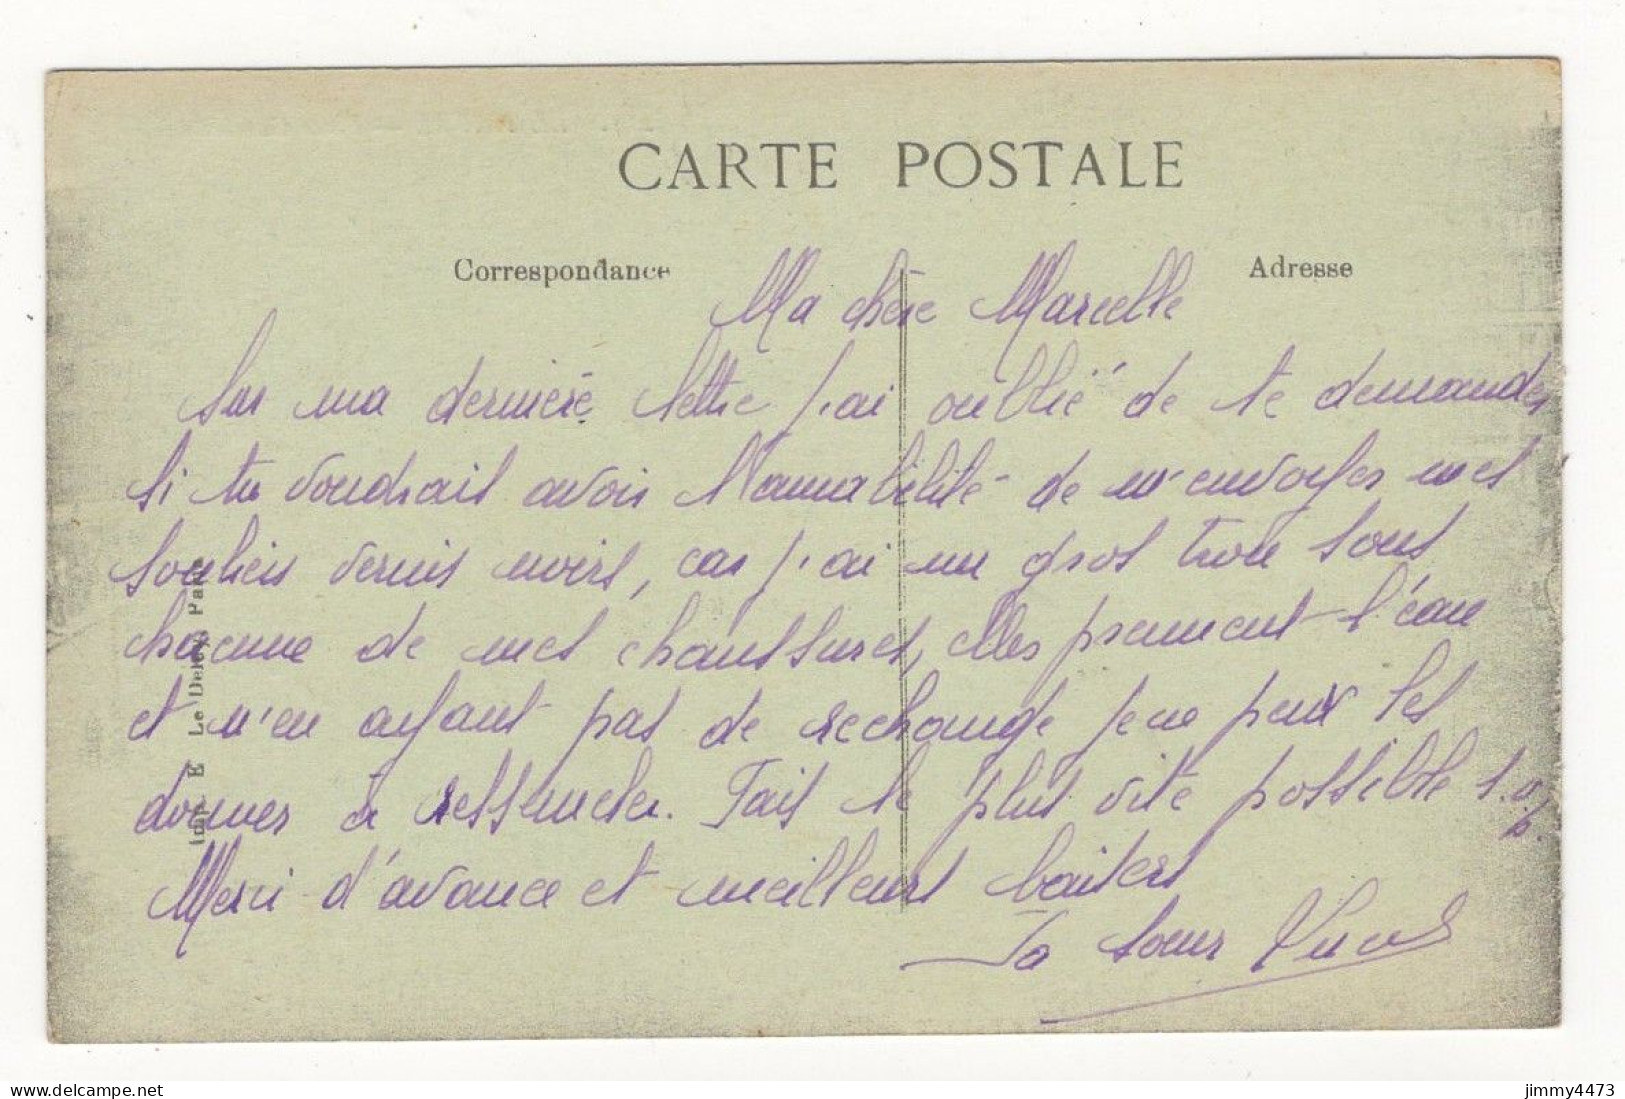 CARTE POSTALE
Correspondance
Adresse
Ma chère Marcelle
Sur ma dernière lettre j'ai oublié de te demander
si tu voudrait avoir l'amabilité de m'envoyer mes
souliers vernis noirs, car j'ai un gros trou sous
chacune de mes chaussures, elles prennent l'eau
et n'en ayant pas de rechange je ne peux les
donner à ressemeler. Fais le plus vite possible s.v.p.
Merci d'avance et meilleurs baisers
Ta sœur
Imp. E. Le Deley, Paris
jimmy4473
delcampe.net